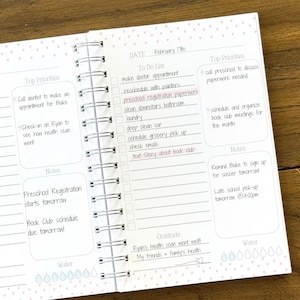 Top Priorities
Call dentist to make an
appointment for Blake
Check-in on Ryan to
see how health scan
went
Notes
Preschool Registration
starts tomorrow
Book Club schedule
due tomorrow!
Water
DATE February 17th
To Do List
make doctor appointment
reschedule with painters
preschool registration paperwork
clean downstairs bathroom
laundry
deep clean car
schedule grocery pick up
check emails
text Stacy about book club
Gratitude
Ryan's health scan went well!
My friends + family's health
Top Priorities
call preschool to discuss
paperwork needed
schedule and organize
book club meetings for
the month
Notes
Remind Blake to sign up
for soccer tomorrow!
Late school pick-up
tomorrow @4:00pm
Water